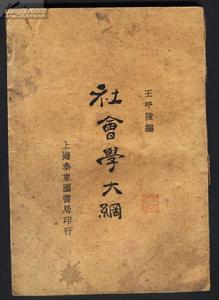 王平陵編
社會學大綱
上海泰東圖書局印行